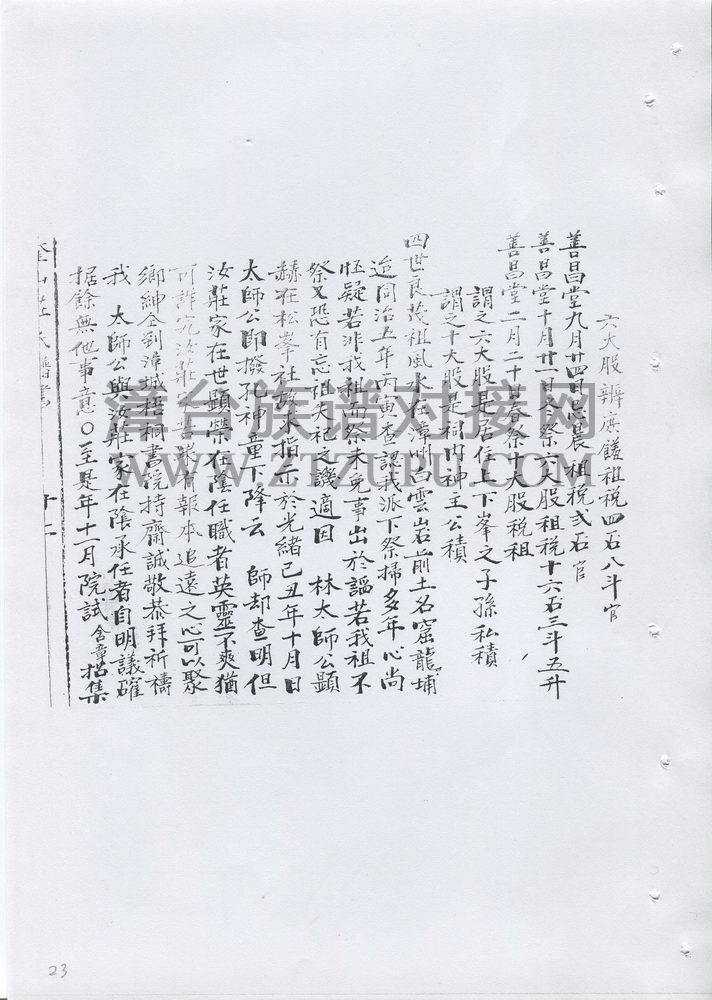 六大股辦房饈租稅四石八斗官
善昌堂九月廿四日忌晨租稅弍石官
善昌堂十月廿一日冬祭六大股租稅十六石三斗五升
善昌堂二月二十日春祭十大股稅租
謂之六大股是居住上下峯之子孫私積
謂之十大股是祠内神主公積
四世良茂祖風水在漳州白雲岩前土名窑龍埔
迨同治五年丙寅查認我派下祭掃多年心尚
怪疑若非我祖而祭未免事出於謟若我祖不
祭又恐有忘祖失祀之譏適因 林大師公顯
赫在松峯社始末指示於光緒己丑年十月日
太師公即撥孔神童下降云 師却查明但
汝莊家在世顯榮在陰任職者英靈不爽猶
可詐究汝莊 有報本追遠之心可以聚
鄉紳仝到漳城梧桐書院持齋誠敬恭拜祈禱
我 太師公與汝莊家在陰承任者自明議確
据餘無他事意〇至是年十一月院試含章招集
莊氏譜 十二
漳台族谱对接网
WWW.ZTZUPU.COM
23